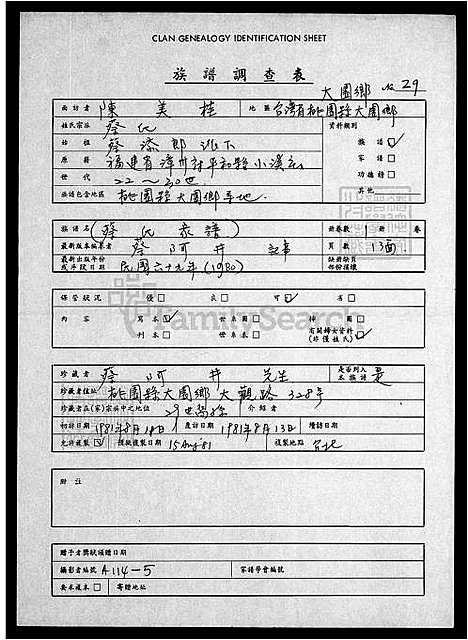 CLAN GENEALOGY IDENTIFICATION SHEET
族譜調查表
大園鄉 No 29
面訪者 陳美桂 地區 台灣省桃園縣大園鄉
姓氏宗族 蔡氏 資料類別
始祖 蔡添郎派下 族譜 ✓
原籍 福建省漳州府平和縣小溪 家譜 □
世代 22~30世 功德榜 □
族譜包含地區 桃園縣大園鄉等地. 其他
族譜名 (蔡氏家譜) 冊卷數 冊 卷
最新版本編纂者 蔡阿井 頁數 13面
最新出版年份或手段日期 民國六十九年(1980) 缺冊缺頁部份損壞
保管狀況 優□ 良□ 可✓ 劣□
內容 寫本✓ 世系圖□ 神圖□
刊本□ 世系表□ 有關婦女資料(非僅姓氏)✓
FamilySearch
珍藏者 蔡阿井先生 是否列入本族譜 是
珍藏者住址 桃園縣大園鄉大觀路328号
珍藏者在(家)宗族中之地位 29世 介紹者
初訪日期 1981年8月 複訪日期 1981年8月13日 續訪日期
允許複製 ✓ 複製日期 15 Aug 81 複製地點
附註
贈予者獎狀頒贈日期
攝影者編號 A114-5 家譜學會編號
要來複本□ 寄贈地址